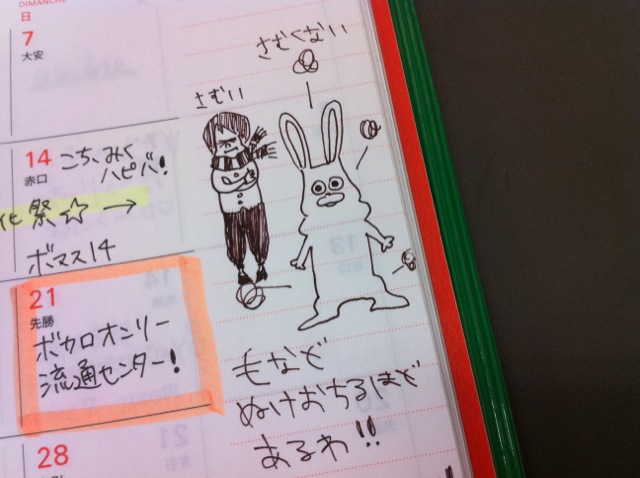 DIMANCHE
日
7
大安
14
赤口
こち、みく
ハピバ!
化祭☆→
ボマス14
21
先勝
ボカロオンリー
流通センター!
28
さむくない
さむい
毛なぞ
ぬけおちるほど
あるわ!!